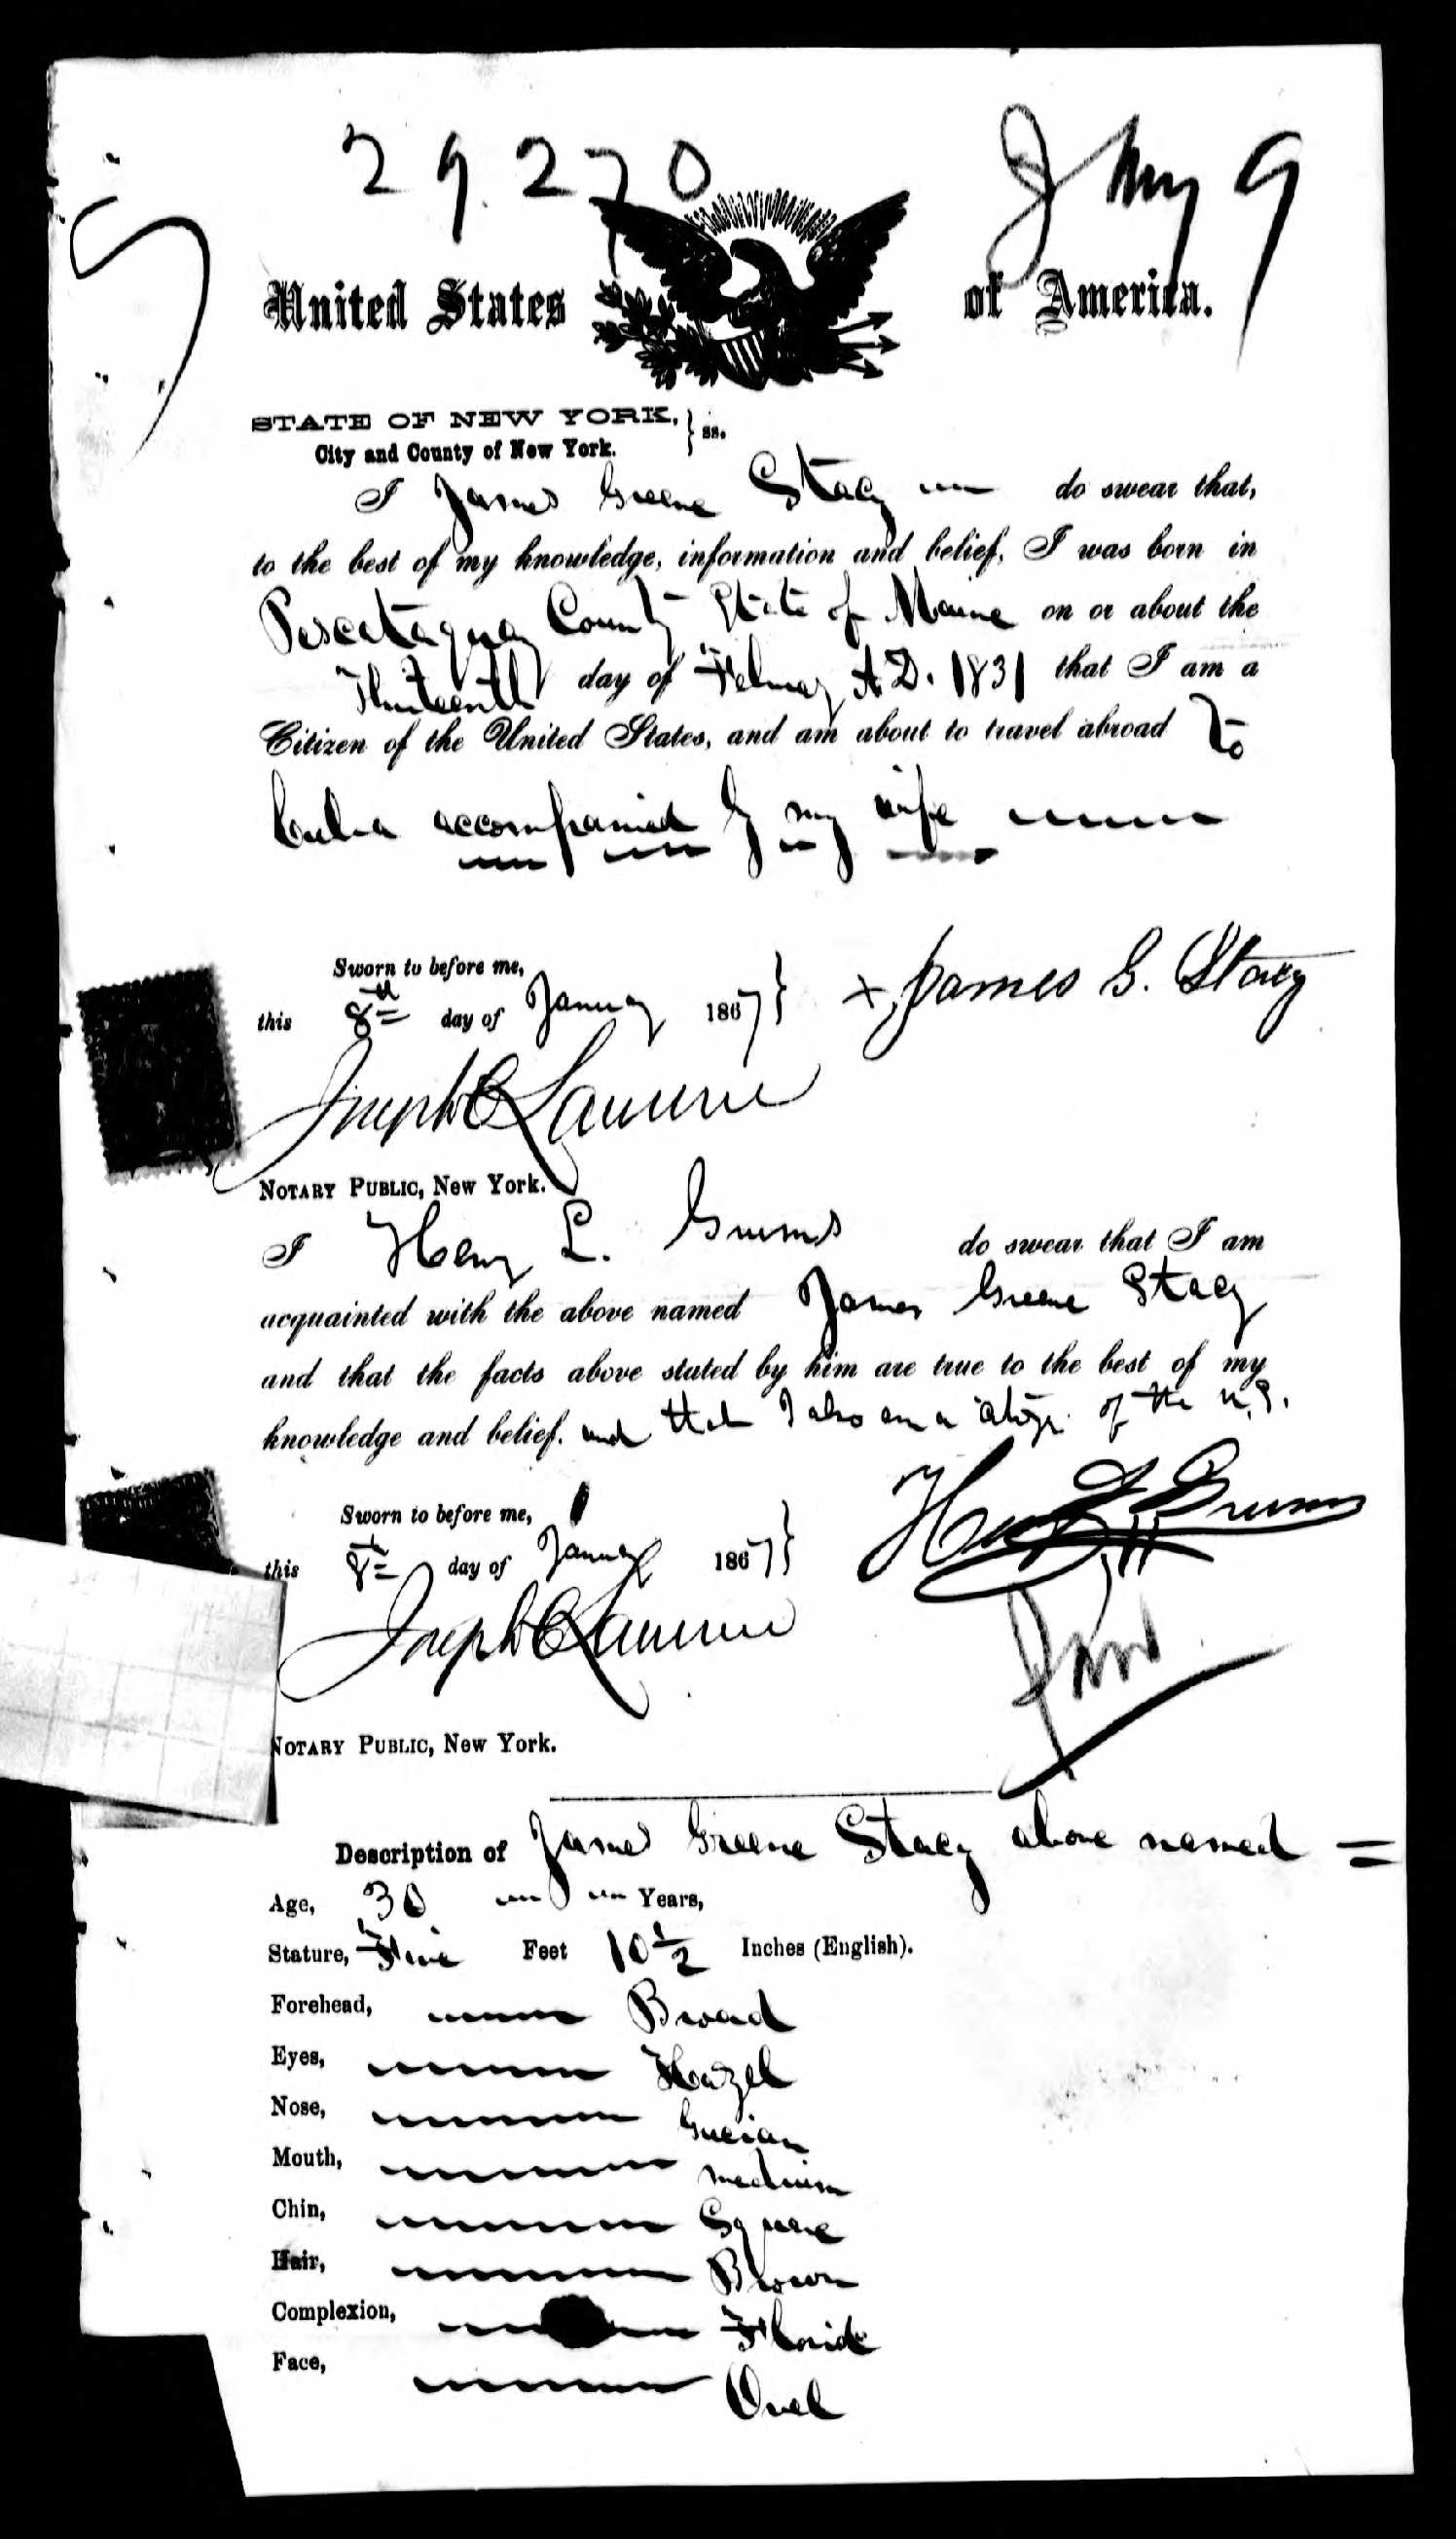 29.270
Jany 9
United States of America.
STATE OF NEW YORK, } ss.
City and County of New York.
I James Greene Stacy do swear that,
to the best of my knowledge, information and belief, I was born in
Piscataquay County State of Maine on or about the
Thirteenth day of Februay A.D. 1831 that I am a
Citizen of the United States, and am about to travel abroad To
Cuba accompanied by my wife
Sworn to before me,
this 8th day of January 1867 }
x James G. Stacy
Joseph C Lawrence
NOTARY PUBLIC, New York.
I Henry L. do swear that I am
acquainted with the above named James Greene Stacy
and that the facts above stated by him are true to the best of my
knowledge and belief. and that I also am a citizn of the U.S.
Sworn to before me,
this 8th day of January 1867 }
Joseph C Lawrence
NOTARY PUBLIC, New York.
Description of James Greene Stacy above named =
Age, 30 Years,
Stature, Five Feet 10 1/2 Inches (English).
Forehead, Broad
Eyes, Hazel
Nose, Grecian
Mouth, medium
Chin, Square
Hair, Brown
Complexion, Florid
Face, Oval